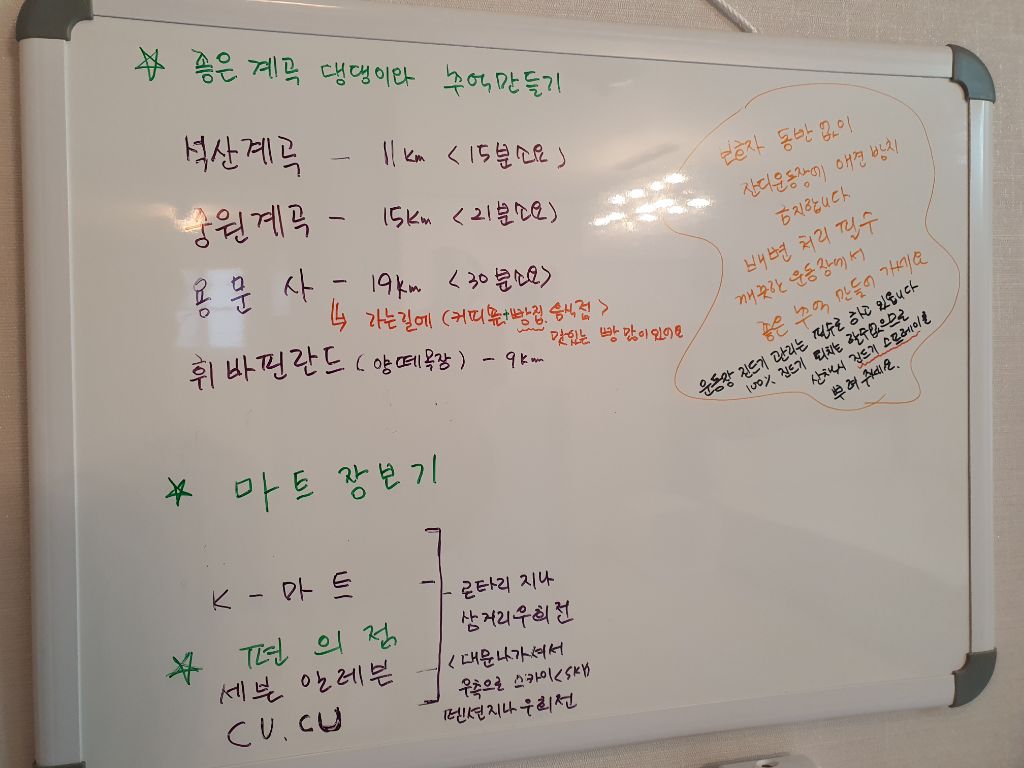 ☆ 좋은계곡 댕댕이와 추억만들기
석산계곡 - 11km <15분소요>
중원계곡 - 15km <21분소요>
용문사 - 19km <30분소요>
↳ 가는길에 (커피솔+빵집 음식점>
맛있는 빵 많이있어요
휘바핀란드 (양떼목장) - 9km
보호자 동반 없이
잔디운동장에 애견 방치
금지합니다
배변 처리 필수
깨끗한 운동장에서
좋은 추억 만들어 가세요
운동장 진드기 관리는 필수로 하고 있읍니다
100% 진드기 퇴치는 할수없으므로
산책시 진드기 스프레이를
뿌려 주세요.
☆ 마트 장보기
K-마트
☆ 편의점
세븐일레븐
CU. CU
로타리 지나
삼거리우회전
<대문나가셔서
우측으로 스카이<SKY>
펜션지나 우회전